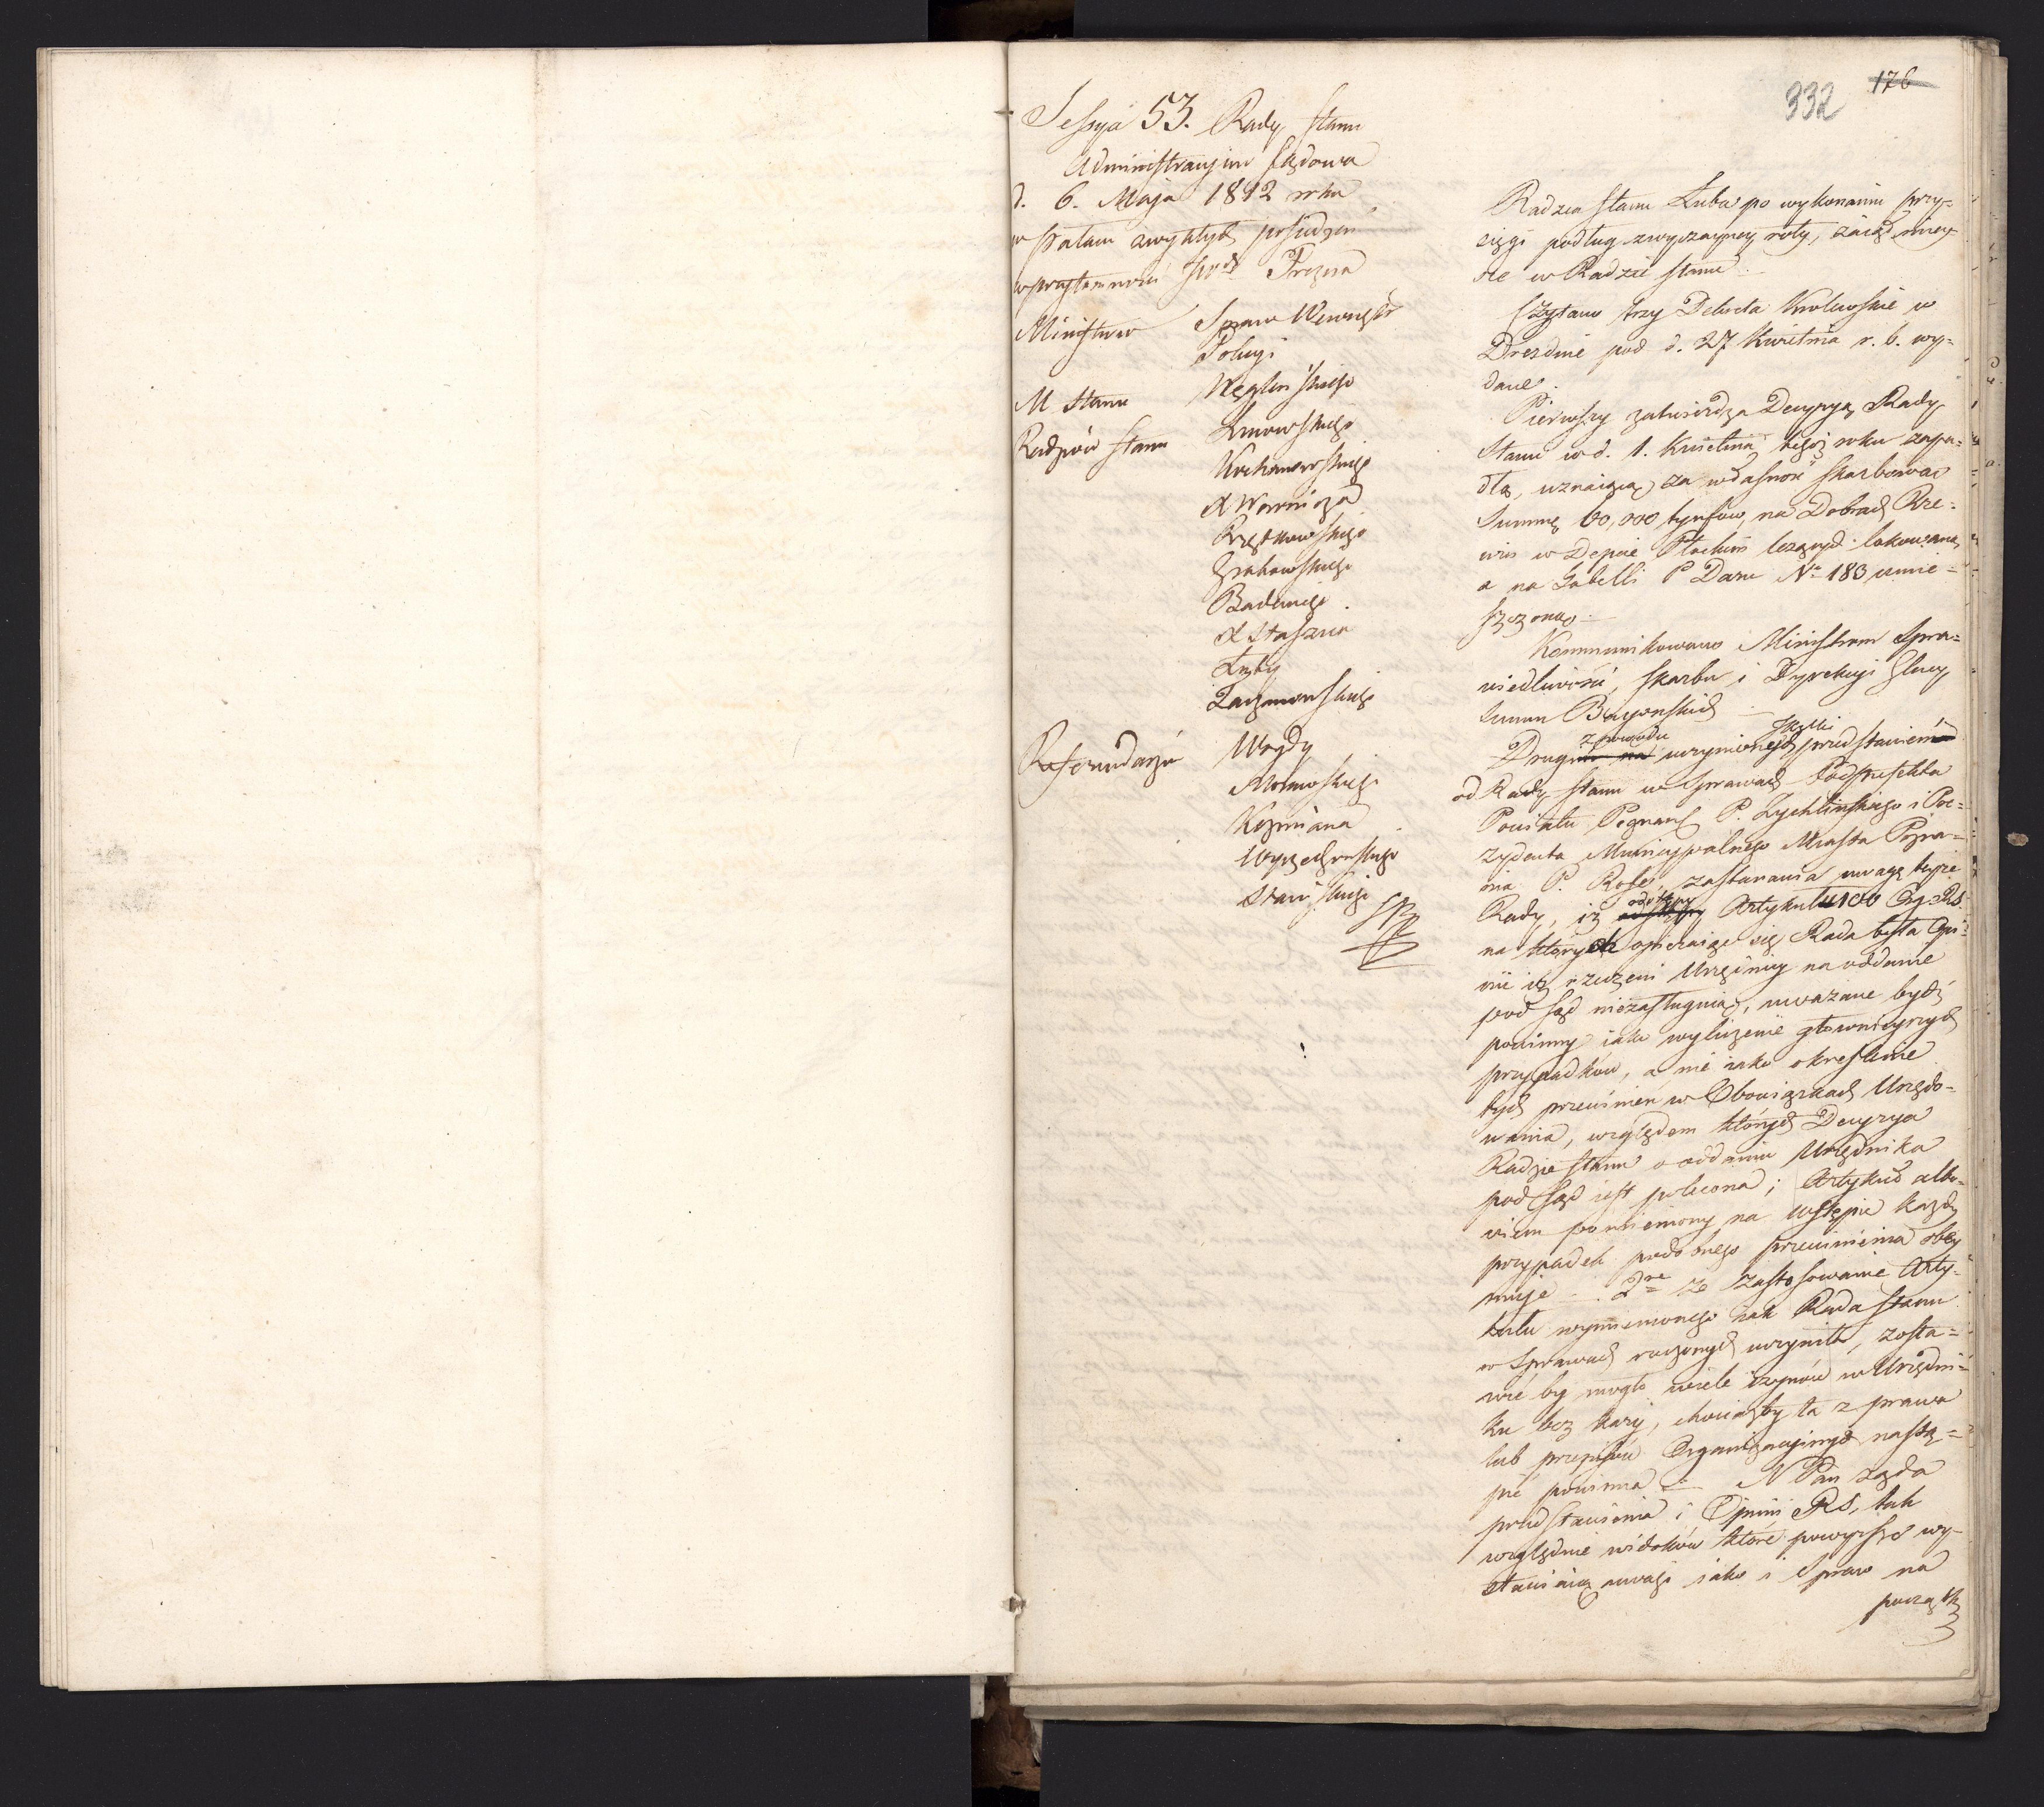 176
332
Sessya 53. Rady Stanu
Administracyino Sądowa
d. 6. Maja 1812 roku
w Pałacu zwykłych posiedzeń
w przytomności JWch Prezesa
Ministrów Spraw Wewnętr
Policyi
M Stanu Węgleńskiego
Radzców Stanu Linowskiego
Kochanowskiego
X Woronicza
Grabowskiego
Badeniego
X Staszica
Łuby
Referendarzy Wojdy
Morawskiego
Koźmiana
Wyczechowskiego
Radzca Stanu Łuba po wykonaniu przy=
sięgi podług zwyczayney roty, zaiął miey
sce w Radzie Stanu.
Czytano trzy Dekreta Krolewskie w
Dreznie pod d. 27 Kwietnia r. b. wy=
dane.
Pierwszy zatwierdza Decyzyą Rady
Stanu w d. 1. Kwietnia tegoż roku zapa=
dłą, uznaiącą za własność Skarbową
Summę 60,000 tynfów, na Dobrach
w Depcie Płockim leżących lokowaną
a na Tabelli P Daru No 183 umie=
szczoną.
Kommunikowano Ministrom Spra=
wiedliwości, Skarbu i Dyrekcyi Głney
Summ Bayonskich
Drugi z powodu uczynionych przedstawień
od Rady Stanu w Sprawach Podprefekta
Powiatu Poznans P. Zychlinskiego i Pre=
zydenta Municypalnego Miasta Pozna=
nia P. Rose, zastanawia uwagę teyże
Rady, iż odstępy Artykułu 100 Org. RS
na których opieraiąc się Rada była Opi=
nii iż rzeczeni Urzędnicy na oddanie
pod Sąd niezasługuią, uważane bydź
powinny iako wyliczenie głównieyszych
przypadków, a nie iako określenie
tych przewinień w Obowiązkach Urzędo=
wania, względem których Decyzya
Radzie Stanu o oddaniu Urzędnika
pod Sąd iest polecona; Artykuł albo=
wiem pomieniony na wstępie każdy
przypadek podobnego przewinienia obey
muje. 2re że zastosowanie Arty=
kułu wymienionego iak Rada Stanu
w Sprawach rzeczonych uczyniła, zosta=
wić by mogło wiele czynów w Urzędni=
ku bez kary, chociażby ta z prawa
lub przepisów Organizacyinych nastą=
pić powinna N Pan żąda
przedstawienia i Opinii RS, tak
względnie widoków które powyższe wy=
stawiaią uwagi iako i Spraw na
początk